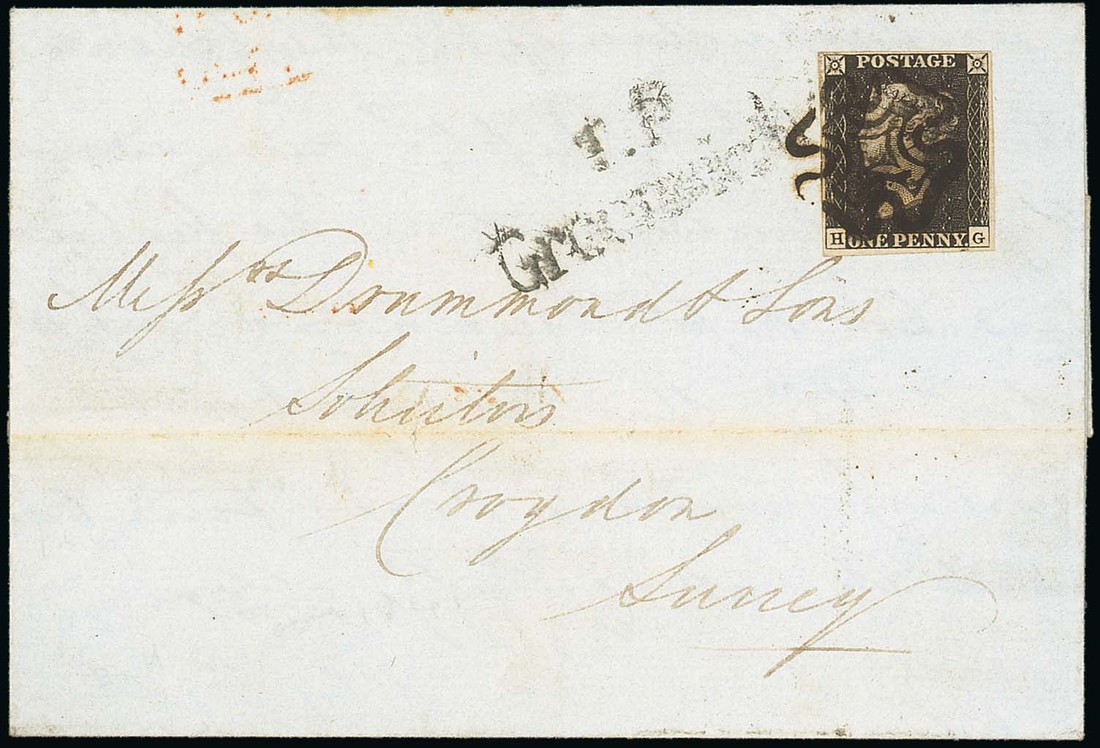 POSTAGE
H ONE PENNY. G
T.P.
Messrs Drummond & Sons
Solicitors
Croydon
Surrey